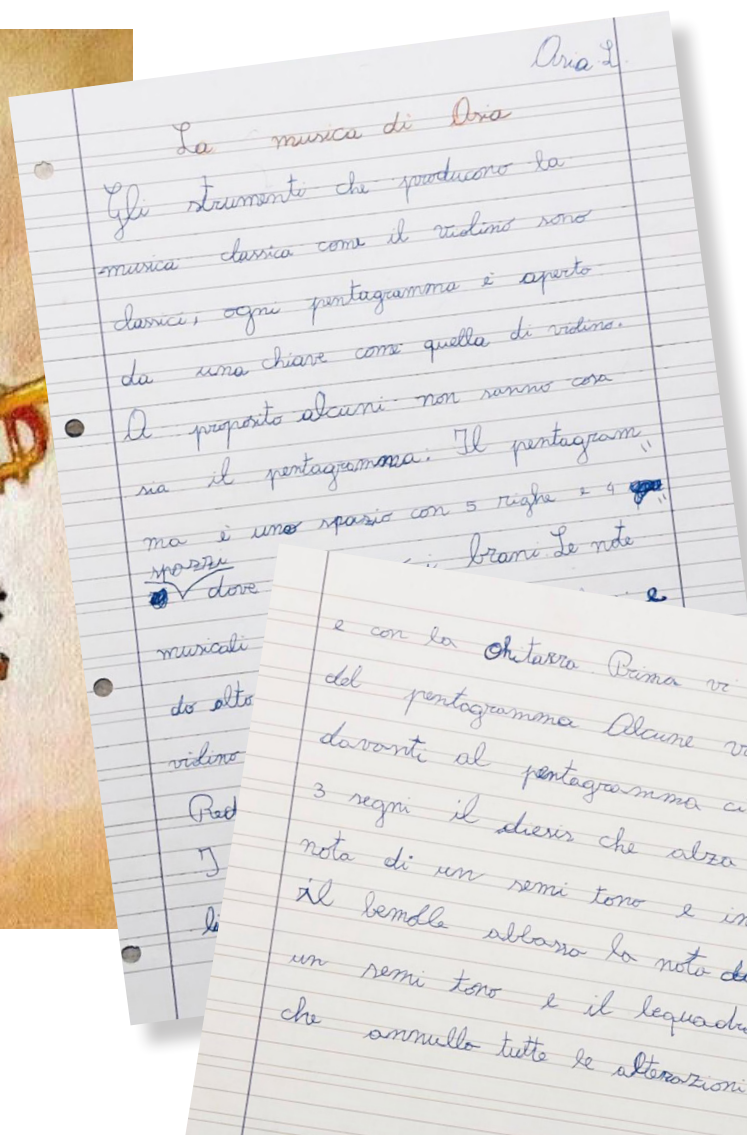 Aria L.
La musica di Aria
Gli strumenti che producono la
musica classica come il violino sono
classici, ogni pentagramma è aperto
da una chiave come quella di violino.
A proposito alcuni non sanno cosa
sia il pentagramma: Il pentagram
ma è uno spazio con 5 righe e 4
spazzi
dove brani Le note
musicali e
do alto
violino
Red
I
li
e con la chitarra Prima vi
del pentagramma Alcune v
davanti al pentagramma ci
3 segni il diesis che alza
nota di un semi tono e in
il bemolle abbassa la nota di
un semi tono e il bequadro
che annullo tutte le alterazioni
D